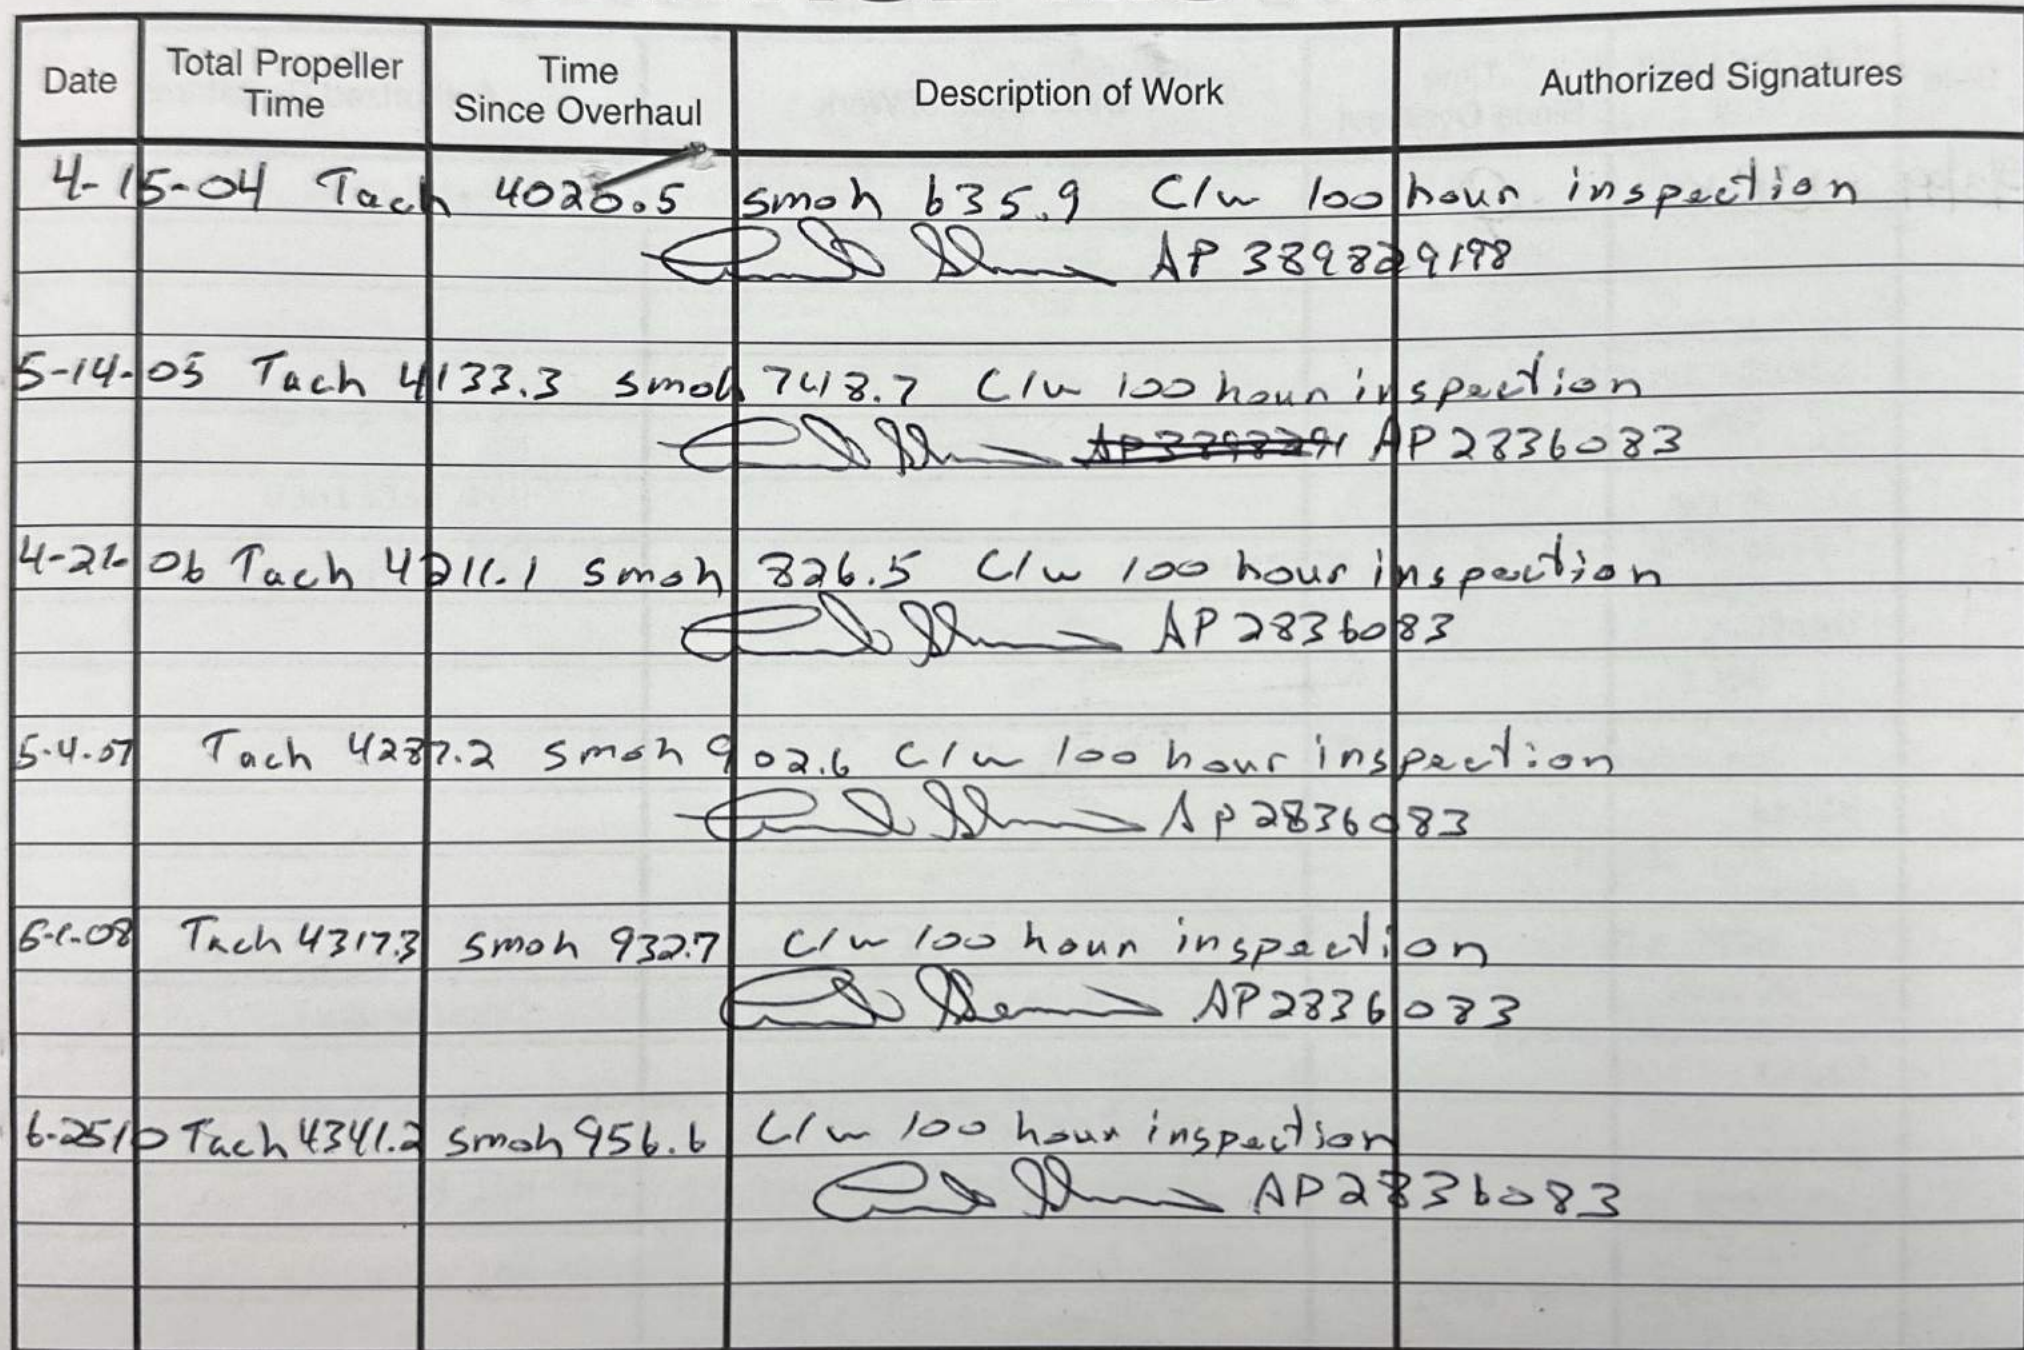 Date
Total Propeller
Time
Time
Since Overhaul
Description of Work
Authorized Signatures
4-15-04 Tach 4020.5 smoh 635.9 C/w 100 hour inspection
AP 389829198
5-14-05 Tach 4133.3 smoh 748.7 C/w 100 hour inspection
AP 2836083
4-21-06 Tach 4211.1 smoh 826.5 C/w 100 hour inspection
AP 2836083
5-4-07 Tach 4287.2 smoh 902.6 C/w 100 hour inspection
AP 2836083
5-1-08 Tach 4317.3 smoh 932.7 C/w 100 hour inspection
AP 2836083
6-2510 Tach 4341.2 smoh 956.6 C/w 100 hour inspection
AP 2836083